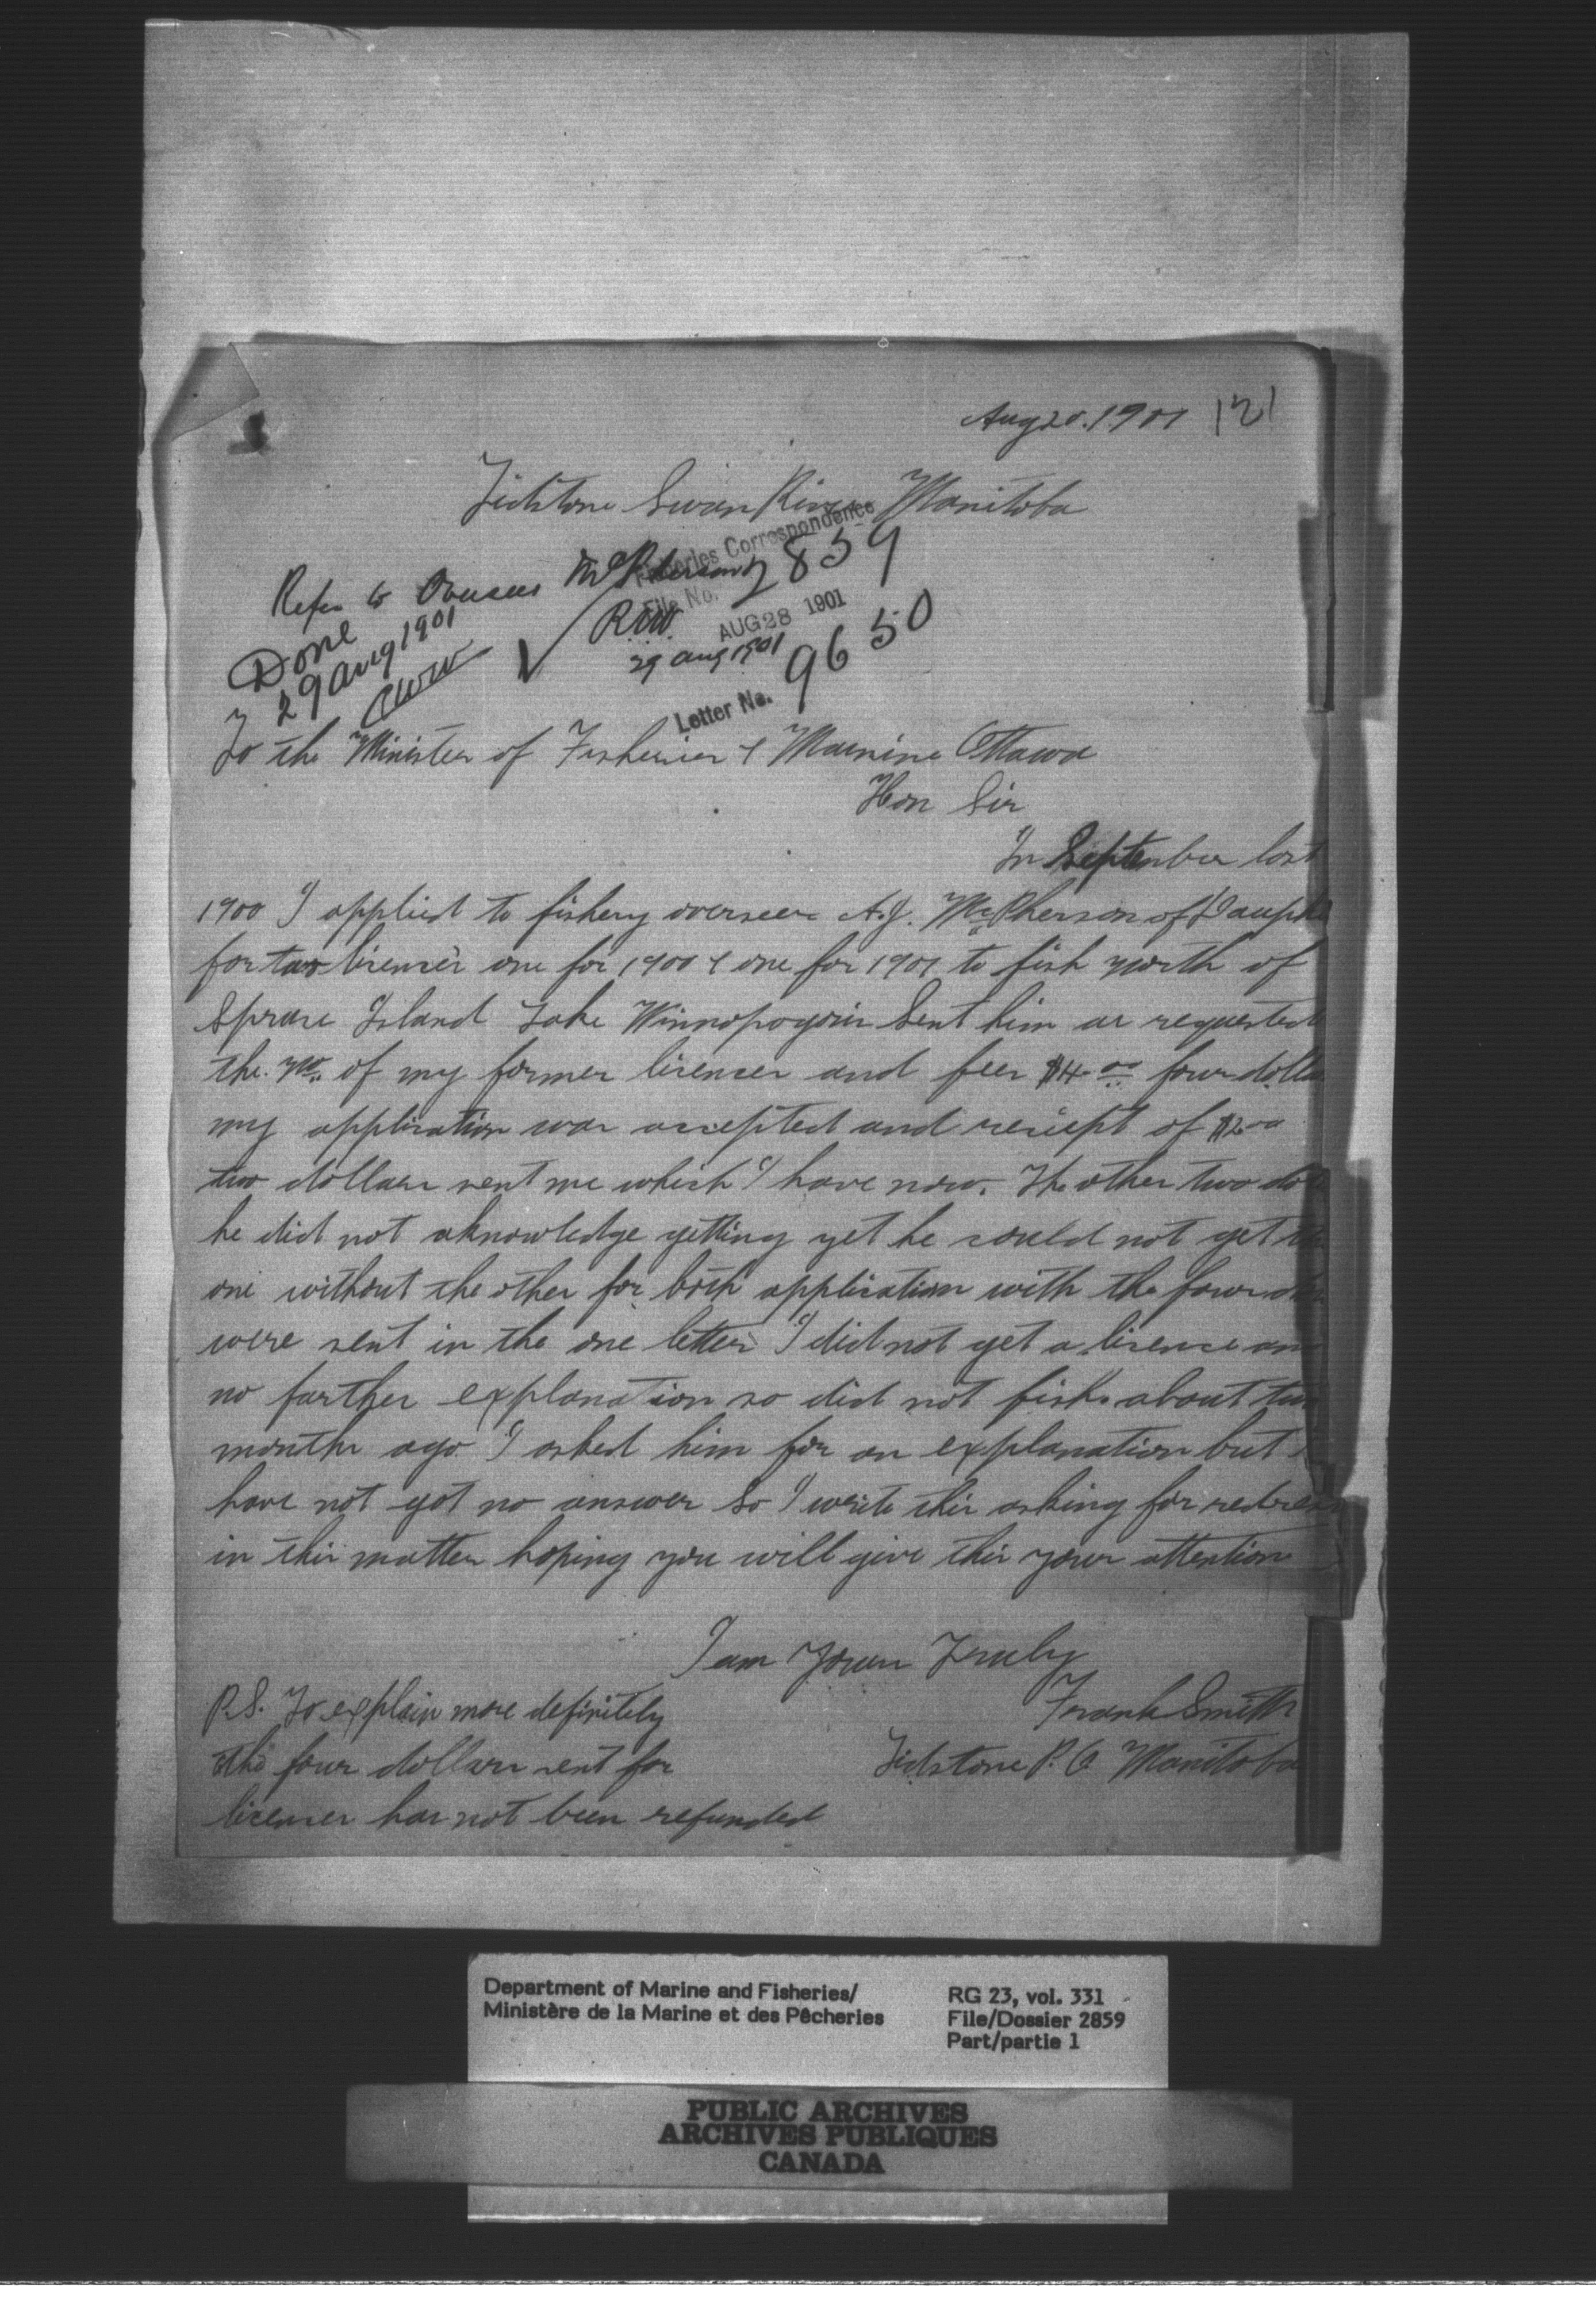 Aug 20. 1901 121
Tidstone Swan River Manitoba
Fisheries Correspondence
File No. 2859
AUG 28 1901
Letter No. 9650
Refer to Overseer McPherson
R.N.V.
29 Aug 1901
Done
29 Aug 1901
To the Minister of Fisheries & Marnine Ottawa
Hon Sir
In September last
1900 I applied to fishery overseer A.J. McPherson of Dauphi
for two licences one for 1900 & one for 1901 to fish north of
Spruce Island Lake Winnopogosis Sent him as requested
the no. of my former licences and fees $4.00 four dolla
my application was accepted and reciept of $2.00
two dollars sent me which I have now. The other two do
he did not aknowledge getting yet he could not get th
one without the other for both application with the four
were sent in the one letter I did not get a licence an
no farther explanation so did not fish. about two
months ago I asked him for an explanation but
have not got no answer So I write this asking for redress
in this matter hoping you will give this your attention
I am Yours Truly
Frank Smith
Tidstone P. O Manitoba
P.S. To explain more definitely
the four dollars sent for
licences has not been refunded
Department of Marine and Fisheries/
Ministère de la Marine et des Pêcheries
RG 23, vol. 331
File/Dossier 2859
Part/partie 1
PUBLIC ARCHIVES
ARCHIVES PUBLIQUES
CANADA